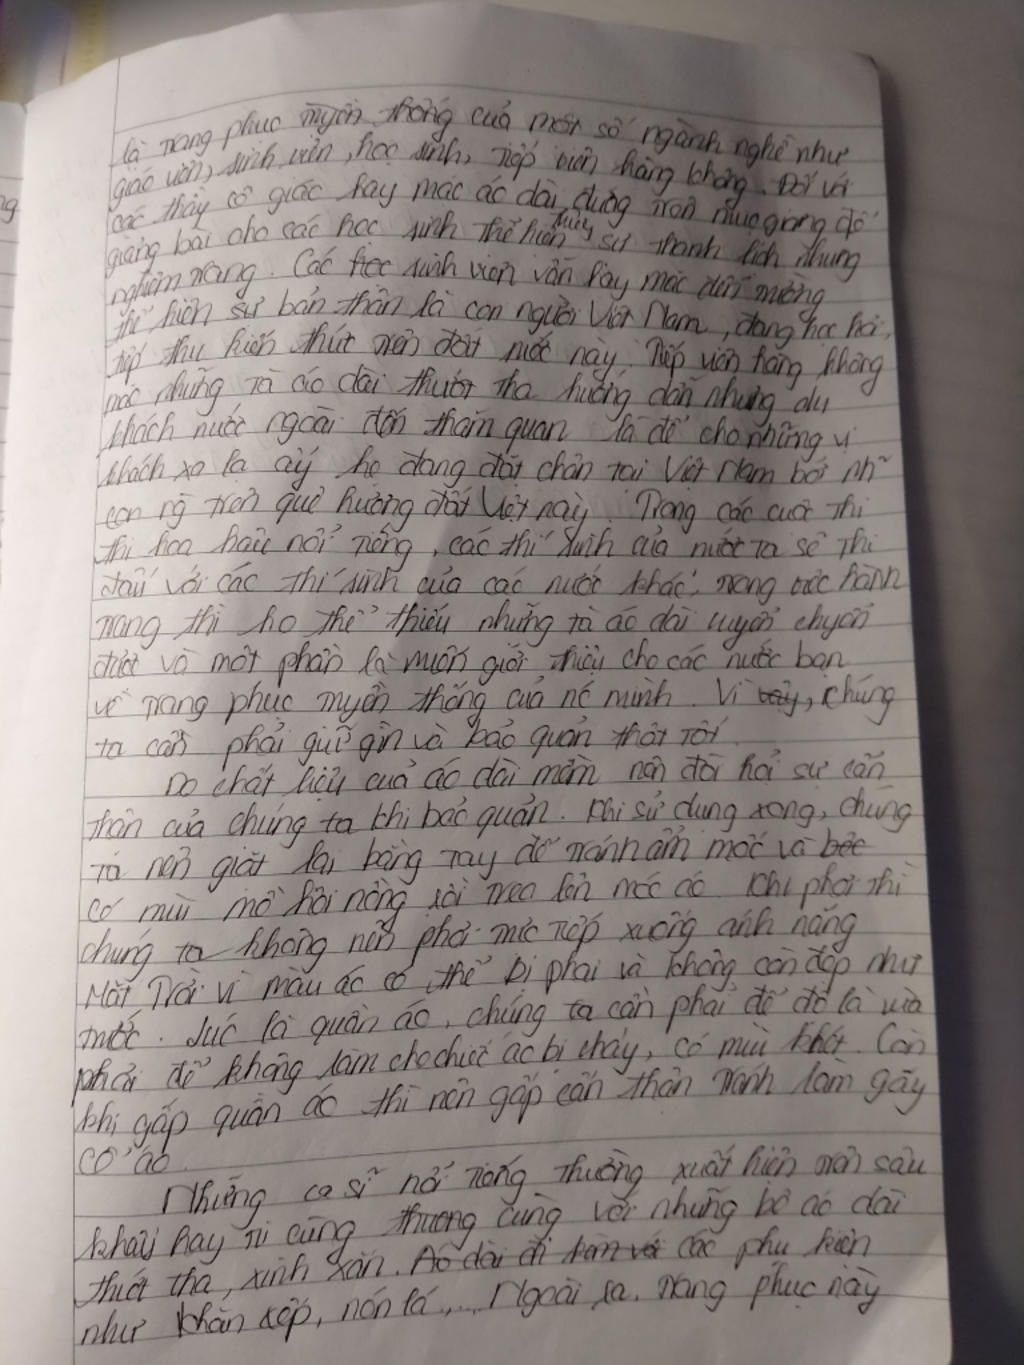 là trang phục truyền thống của một số ngành nghề như
giáo viên, sinh viên, học sinh, tiếp viên hàng không. Đối với
các thầy cô giáo hay mặc áo dài đứng trên mục giảng để
giảng bài cho các học sinh thể hiện sự thanh lịch nhưng
nghiêm trang. Các học sinh viên vẫn hay mặc đến trường
thể hiện sự bản thân là con người Việt Nam, đang học hỏi,
tiếp thu kiến thức trên đất nước này. Tiếp viên hàng không
mặc những tà áo dài thướt tha hướng dẫn những du
khách nước ngoài đến tham quan là để cho những vị
khách xa lạ ấy họ đang đặt chân tại Việt Nam bởi nh~
con ng trên quê hương đất Việt này. Trong các cuộc thi
thi hoa hậu nổi tiếng, các thí sinh của nước ta sẽ thi
đấu với các thí sinh của các nước khác, trong hành
trang thì họ thể thiếu những tà áo dài uyển chuyển
được và một phần là muốn giới thiệu cho các nước bạn
về trang phục truyền thống của nc mình. Vì vậy, chúng
ta cần phải giữ gìn và bảo quản thật tốt.
Do chất liệu của áo dài mềm nên đòi hỏi sự cẩn
thận của chúng ta khi bảo quản. Khi sử dụng xong, chúng
ta nên giặt lại bằng tay để tránh ẩm mốc và
có mùi mồ hôi nồng rồi treo lên móc áo. Khi phơi thì
chúng ta không nên phơi trực tiếp xuống ánh nắng
Mặt Trời vì màu áo có thể bị phai và không còn đẹp như
trước. Lúc là quần áo, chúng ta cần phải để độ là vừa
phải để không làm cho chiếc áo bị cháy, có mùi khét. Còn
khi gấp quần áo thì nên gấp cẩn thận tránh làm gãy
cổ áo.
Những ca sĩ nổi tiếng thường xuất hiện trên sâu
khấu hay ti cũng thương cùng với những bộ áo dài
thướt tha, xinh xắn. Áo dài đi kèm với các phụ kiện
như khăn xếp, nón lá,... Ngoài ra, trang phục này